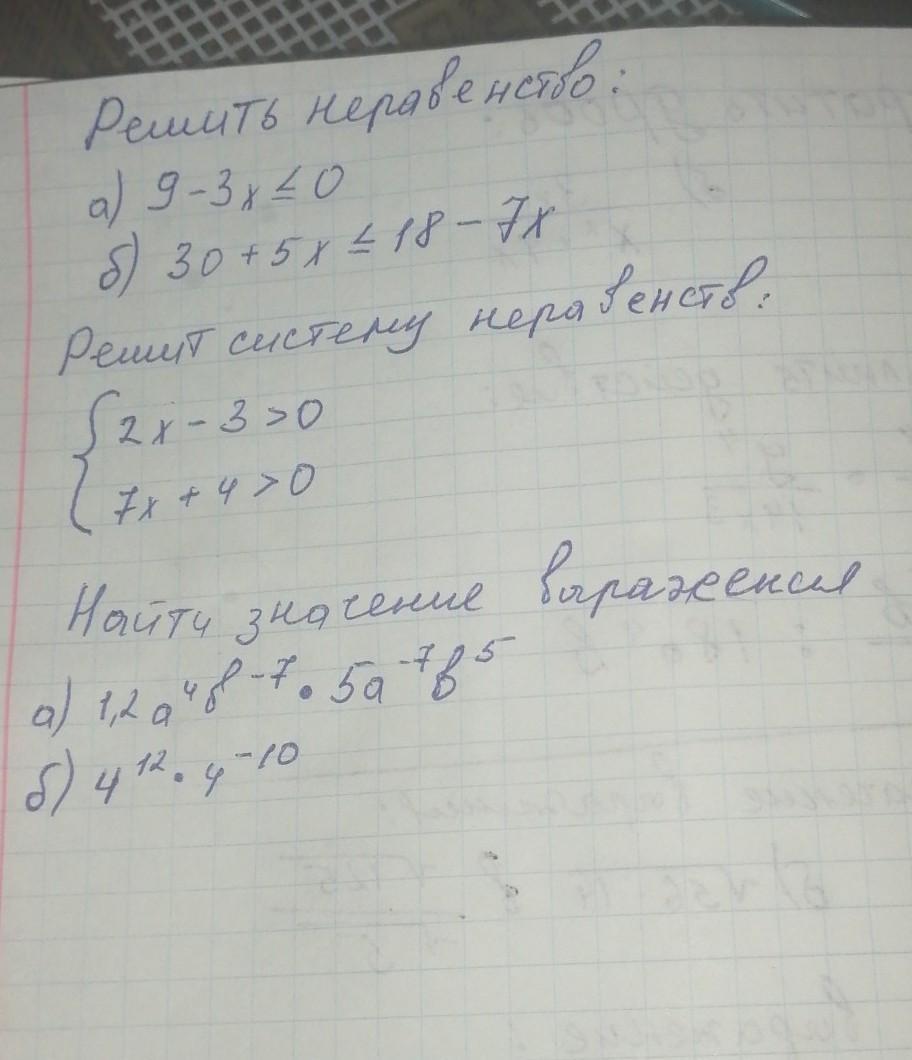 Решить неравенство:
а) 9-3x≤0
б) 30+5x≤18-7x
Решит систему неравенств:
{2x-3>0
7x+4>0
Найти значение выражения
а) 1,2a⁴b⁻⁷•5a⁻⁷b⁵
б) 4¹²•4⁻¹⁰